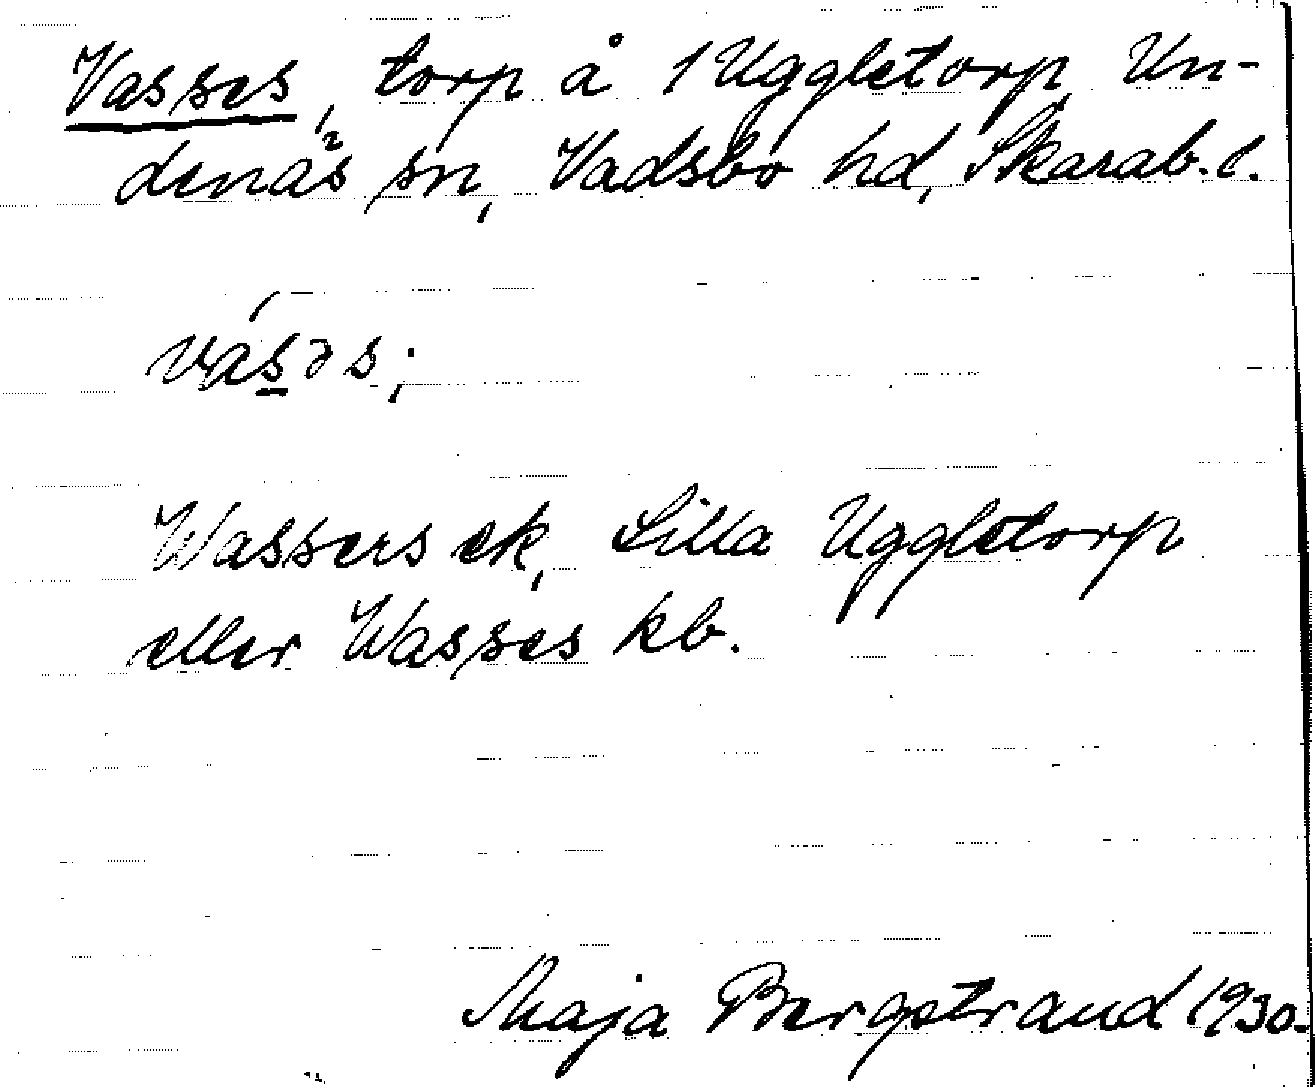 Vasses, torp å 1 Uggletorp, Un-
denäs sn, Vadsbo hd, Skarab. l.
vásəs;
Wassers ek, Lilla Uggletorp
eller Wasses kb.
Maja Bergstrand 1930.